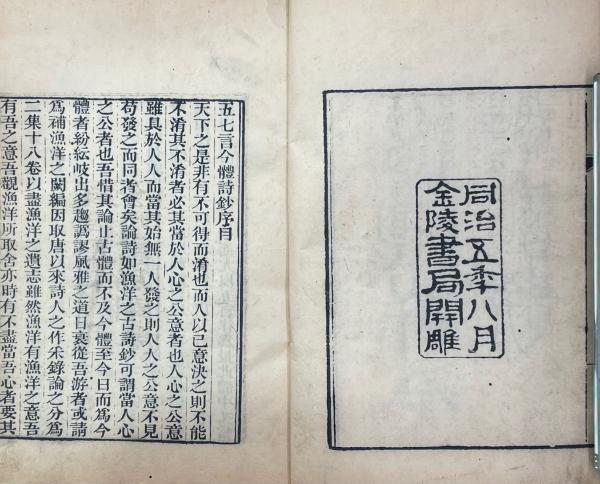 同治五季八月
金陵書局開雕
五七言今體詩鈔序目
天下之是非有不可得而淆也而人以已意決之則不能
不淆其不淆者必其當於人心之公意者也人心之公意
雖具於人人而當其始無一人發之則人人之公意不見
苟發之而同者會矣論詩如漁洋之古詩鈔可謂當人心
之公者也吾惜其論止古體而不及今體至今日而為今
體者紛紜歧出多趨譌謬風雅之道日衰從吾游者或請
為補漁洋之闕編因取唐以來詩人之作采錄論之分為
二集十八卷以盡漁洋之遺志雖然漁洋有漁洋之意吾
有吾之意吾觀漁洋所取舍亦時有不盡當吾心者要其